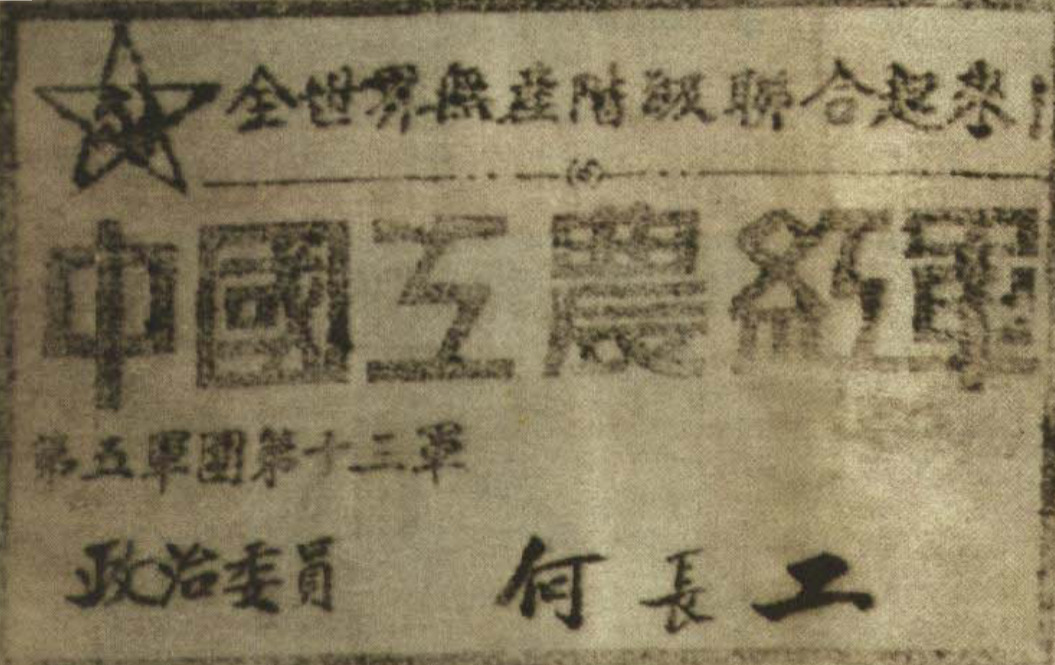 全世界無產階級聯合起來
中國工農紅軍
第五軍團第十三軍
政治委員 何長工